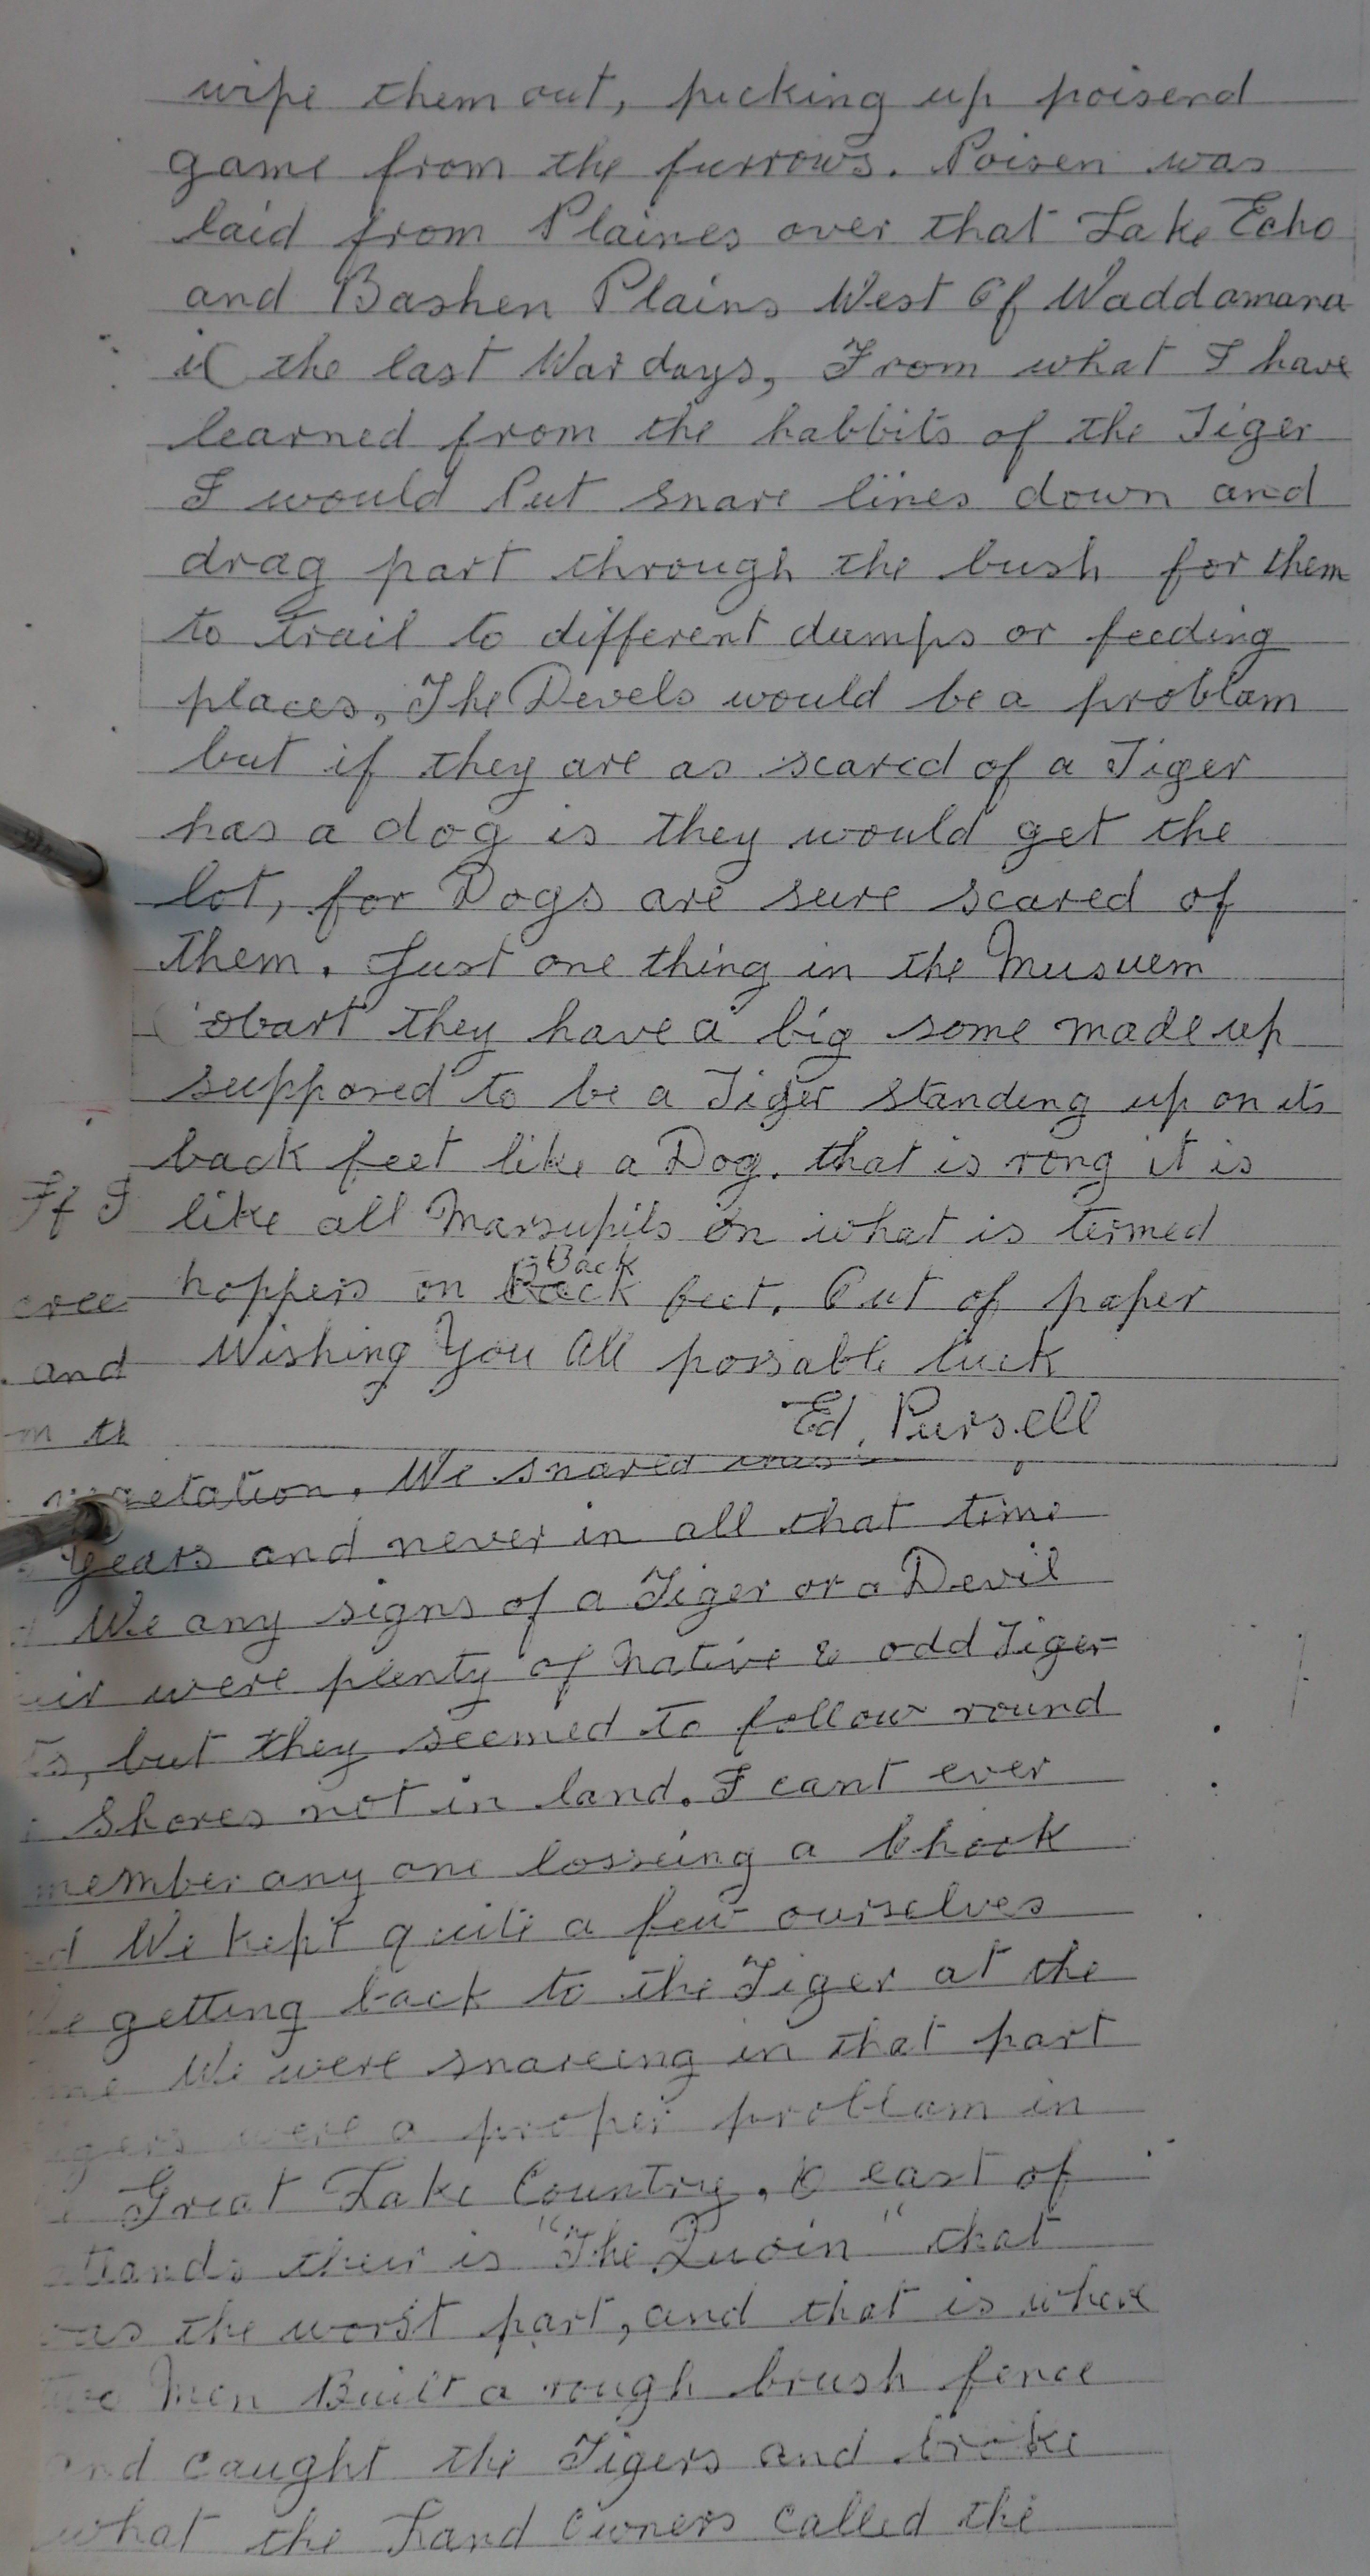 wipe them out, picking up poisend
game from the furrows. Poisen was
laid from Plaines over that Lake Echo
and Bashen Plains West Of Waddamana
the last War days, From what I have
learned from the habbits of the Tiger
I would Put snare lines down and
drag part through the bush for them
to trail to different dumps or feeding
places, The Devels would be a problam
but if they are as scared of a Tiger
has a dog is they would get the
lot, for Dogs are sure scared of
them. Just one thing in the Musuem
obart they have a big some made up
supposed to be a Tiger standing up on its
back feet like a Dog. that is rong it is
If I
like all Marsupils on what is termed
hoppers on Back Back feet. Out of paper
and
Wishing You All possable luck
Ed. Pursell
etation. We snared
years and never in all that time
We any signs of a Tiger or a Devil
eir were plenty of Native & odd Tiger
ts, but they seemed to follow round
Shores not in land. I cant ever
member any one losseing a Chook
d We kept quite a few ourselves
getting back to the Tiger at the
me We were snareing in that part
gers were a proper problam in
Great Lake Country. east of
ttands their is "The Quoin" that
as the worst part, and that is where
Men Built a rough brush fence
and caught the Tigers and broke
what the Land Owners called the